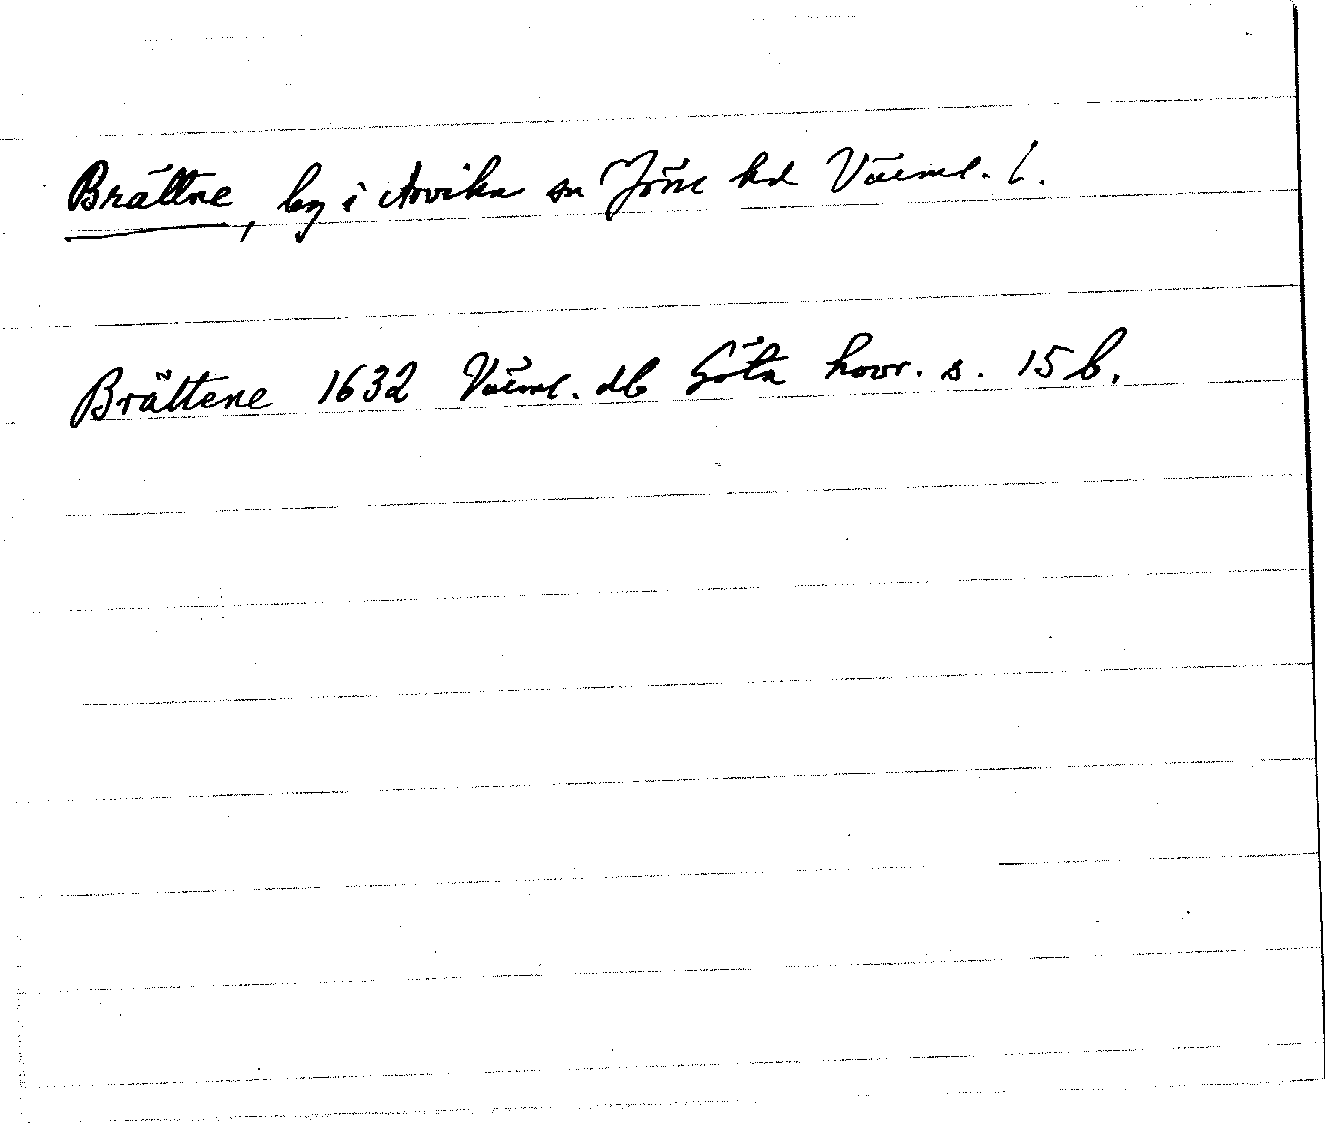 Brättne, by i Arvika sn Jöse hd Värml. l.
Brättene 1632 Värml. db Göta hovr. s. 15 b.